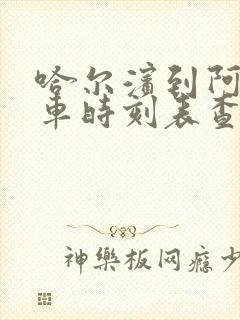 哈尔滨到阿
车时刻表查
神樂板网瘾少